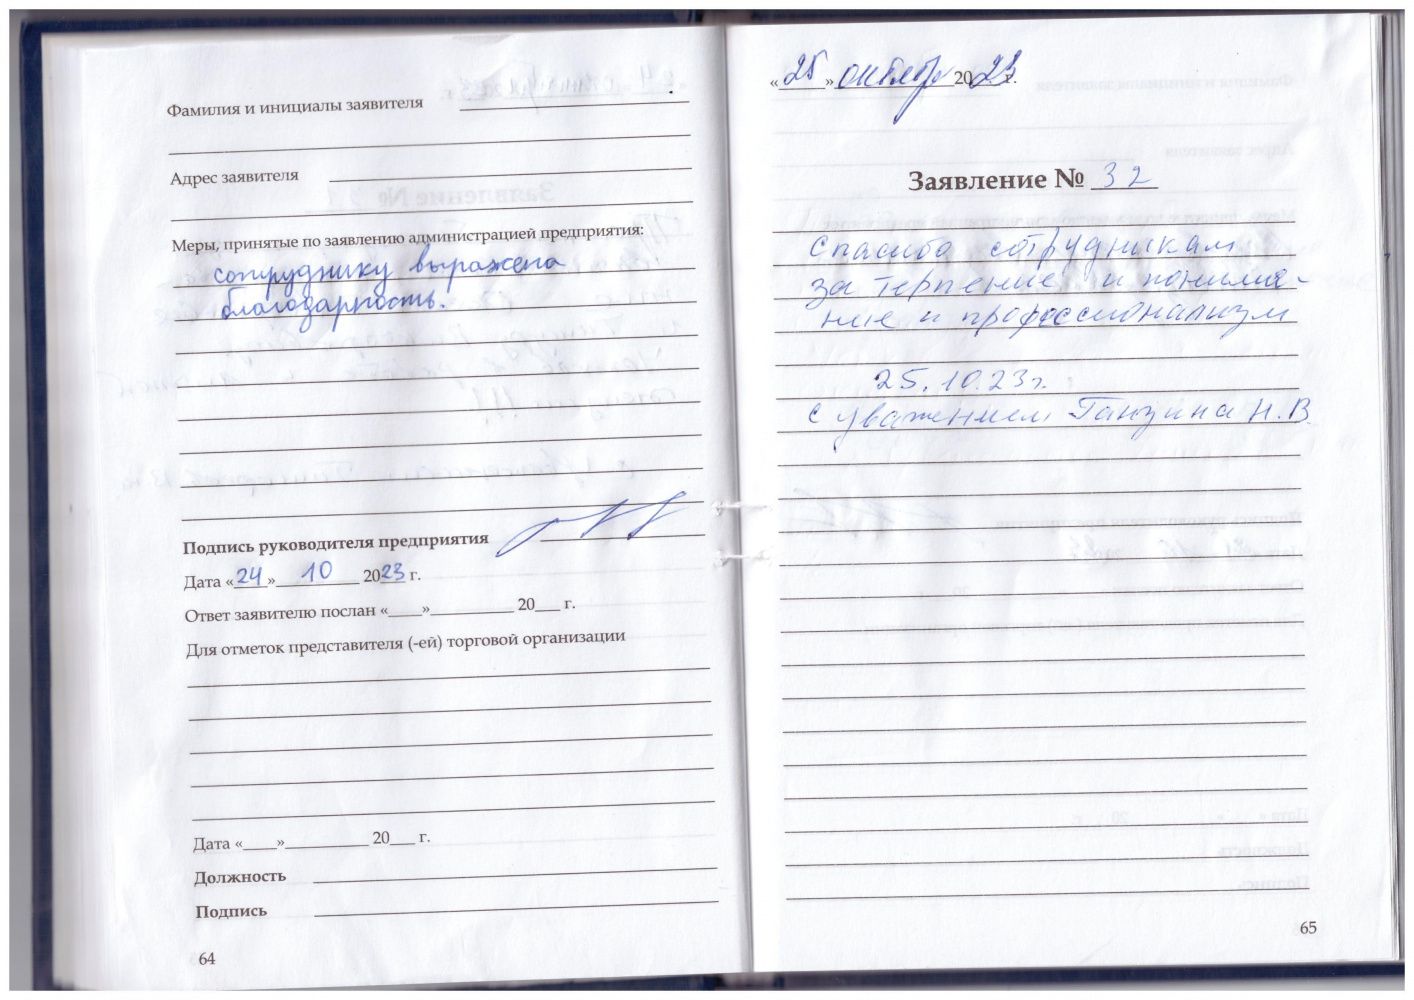 Фамилия и инициалы заявителя
Адрес заявителя
Меры, принятые по заявлению администрацией предприятия:
сотруднику выражена
благодарность.
Подпись руководителя предприятия
Дата «24» 10 2023 г.
Ответ заявителю послан «____»__________ 20___ г.
Для отметок представителя (-ей) торговой организации
Дата «____»__________ 20___ г.
Должность
Подпись
64
«25» октябрь 2023 г.
Заявление № 32
Спасибо сотрудникам
за терпение и понима-
ние и профессионализм
25.10.23г.
с уважением Ганзина Н.В.
65